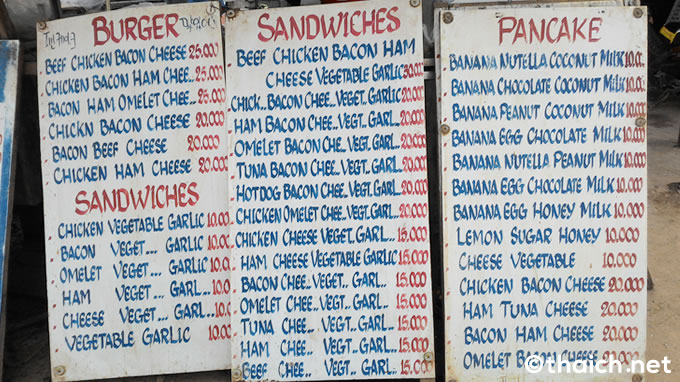 BURGER
BEEF CHICKEN BACON CHEESE 25.000
CHICKEN BACON HAM CHEE... 25.000
BACON HAM OMELET CHEE... 25.000
CHICKN BACON CHEESE 20.000
BACON BEEF CHEESE 20.000
CHICKEN HAM CHEESE 20.000
SANDWICHES
CHICKEN VEGETABLE GARLIC 10.00
BACON VEGET... GARLIC 10.00
OMELET VEGET... GARLIC 10.00
HAM VEGET... GARL.. 10.00
CHEESE VEGET... GARL.. 10.00
VEGETABLE GARLIC 10.00
SANDWICHES
BEEF CHICKEN BACON HAM
CHEESE VEGETABLE GARLIC 30.000
CHICK.. BACON CHEE.. VEGET.. GARL.. 20.000
HAM BACON CHEE.. VEGET.. GARL.. 20.000
OMELET BACON CHEE.. VEGT.. GARL.. 20.000
TUNA BACON CHEE.. VEGT.. GARL.. 20.000
HOTDOG BACON CHEE.. VEGT.. GARL.. 20.000
CHICKEN OMELET CHEE.. VEGT.. GARL.. 20.000
CHICKEN CHEESE VEGET.. GARL.. 15.000
HAM CHEESE VEGETABLE GARLIC 15.000
BACON CHEE.. VEGET.. GARL.. 15.000
OMELET CHEE.. VEGET.. GARL.. 15.000
TUNA CHEE.. VEGET.. GARL.. 15.000
HAM CHEE.. VEGET.. GARL.. 15.000
BEEF CHEE.. VEGET.. GARL.. 15.000
PANCAKE
BANANA NUTELLA COCONUT MILK 10.00
BANANA CHOCOLATE COCONUT MILK 10.00
BANANA PEANUT COCONUT MILK 10.000
BANANA EGG CHOCOLATE MILK 10.000
BANANA NUTELLA PEANUT MILK 10.000
BANANA EGG CHOCOLATE MILK 10.000
BANANA EGG HONEY MILK 10.000
LEMON SUGAR HONEY 10.000
CHEESE VEGETABLE 10.000
CHICKEN BACON CHEESE 20.000
HAM TUNA CHEESE 20.000
BACON HAM CHEESE 20.000
OMELET BACON CHEESE 20.000
©thaich.net